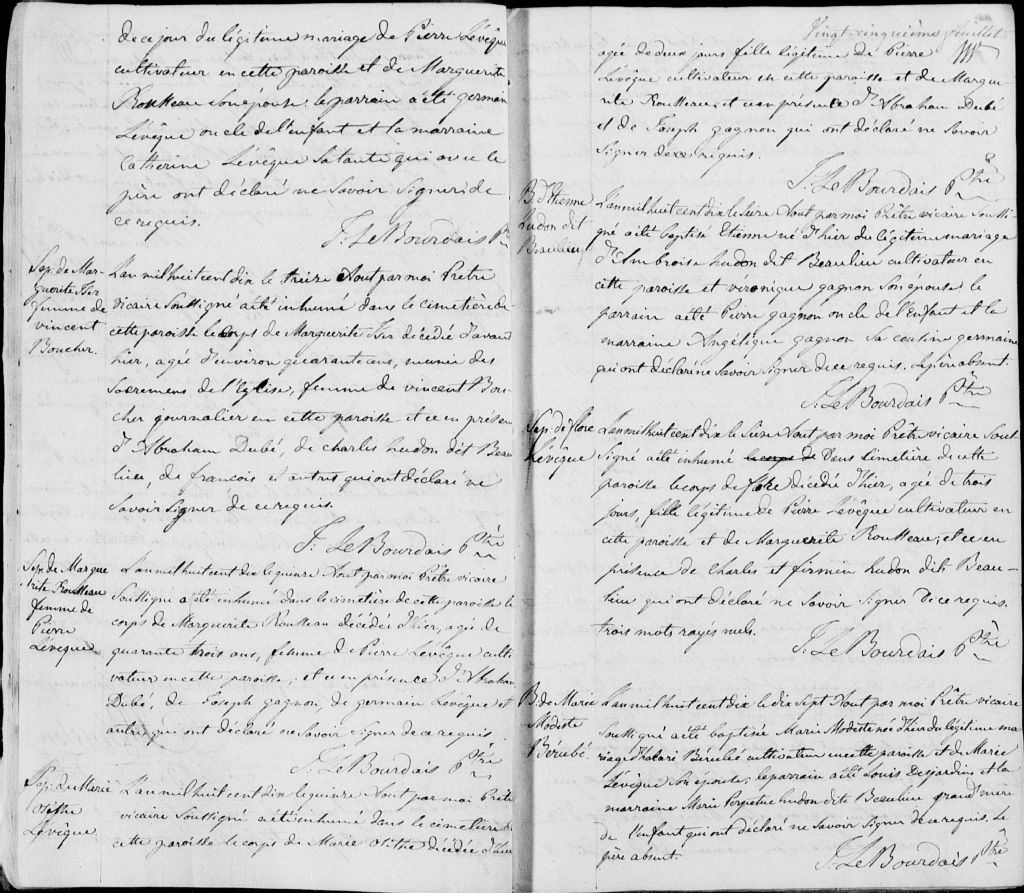 de ce jour du légitime mariage de Pierre Lévêque
cultivateur en cette paroisse et de Marguerite
Rousseau son épouse; le parrain a été germain
Lévêque oncle de l'enfant et la marraine
Catherine Lévêque sa tante qui avec le
père ont déclaré ne Savoir Signer de
ce requis.
J. Le Bourdais Ptre
Sep. de Mar-
guerite
femme de
vincent
Boucher.
L'an mil huit cent dix le treize Aout par moi Prêtre
vicaire Soussigné a été inhumé dans le cimetière de
cette paroisse le corps de Marguerite décédé d'avant
hier, agée d'environ quarante ans, munie des
Sacremens de l'Eglise, femme de vincent Bou
cher journalier en cette paroisse et ce en présen
d'Abraham Dubé, de charles hudon dit Beau
lieu, de francois et autres qui ont déclaré ne
Savoir Signer de ce requis.
J. Le Bourdais Ptre
Sep. de Margue
rite Rousseau
femme de
Pierre
Lévêque
L'an mil huit cent dix le quinze Aout par moi Prêtre vicaire
Soussigné a été inhumé dans le cimetière de cette paroisse le
corps de Marguerite Rousseau décédée d'hier, agée de
quarante trois ans, femme de Pierre Lévêque culti
vateur en cette paroisse, et ce en présence d'Abraham
Dubé, de Joseph gagnon, de germain Lévêque et
autres qui ont déclaré ne Savoir Signer de ce requis
J. Le Bourdais Ptre
Sep. de Marie
Lévêque
L'an mil huit cent dix le quinze Aout par moi Prêtre
vicaire Soussigné a été inhumé dans le cimetière de
cette paroisse le corps de Marie décédée d'hier
Vingt-cinquième feuillet
agée de deux jours fille légitime de Pierre
Lévêque cultivateur en cette paroisse et de Margue
rite Rousseau; et ce en présence d'Abraham Dubé
et de Joseph gagnon qui ont déclaré ne Savoir
Signer de ce requis.
J. Le Bourdais Ptre
B. d'Etienne
hudon dit
Beaulieu
L'an mil huit cent dix le seize Aout par moi Prêtre vicaire Soussi
gné a été baptisé Etienne né d'hier du légitime mariage
d'Ambroise hudon dit Beaulieu cultivateur en
cette paroisse et véronique gagnon Son épouse; le
parrain a été Pierre gagnon oncle de l'Enfant et la
marraine Angélique gagnon Sa cousine germaine
qui ont déclaré ne Savoir Signer de ce requis. Le père absent.
J. Le Bourdais Ptre
Sep. de flore
Lévêque
L'an mil huit cent dix le seize Aout par moi Prêtre vicaire Sous
Signé a été inhumé le corps de Dans cimetière de cette
paroisse le corps de flore décédé d'hier, agée de trois
jours, fille légitime de Pierre Lévêque cultivateur en
cette paroisse et de Marguerite Rousseau; et ce en
présence de Charles et firmin hudon dits Beau-
lieu qui ont déclaré ne Savoir Signer De ce requis.
trois mots rayés nuls.
J. Le Bourdais Ptre
B. de Marie
Modeste
Bérubé.
L'an mil huit cent dix le dix Sept Aout par moi Prêtre vicaire
Soussigné a été baptisée Marie Modeste née d'hier du légitime ma
riage d'hilare Bérubé cultivateur en cette paroisse et de Marie
Lévêque Son épouse; le parrain a été Louis Desjardins et la
marraine Marie Perpetue hudon dite Beaulieu grand'mère
de l'Enfant qui ont déclaré ne Savoir Signer de ce requis. Le
père absent.
J. Le Bourdais Ptre